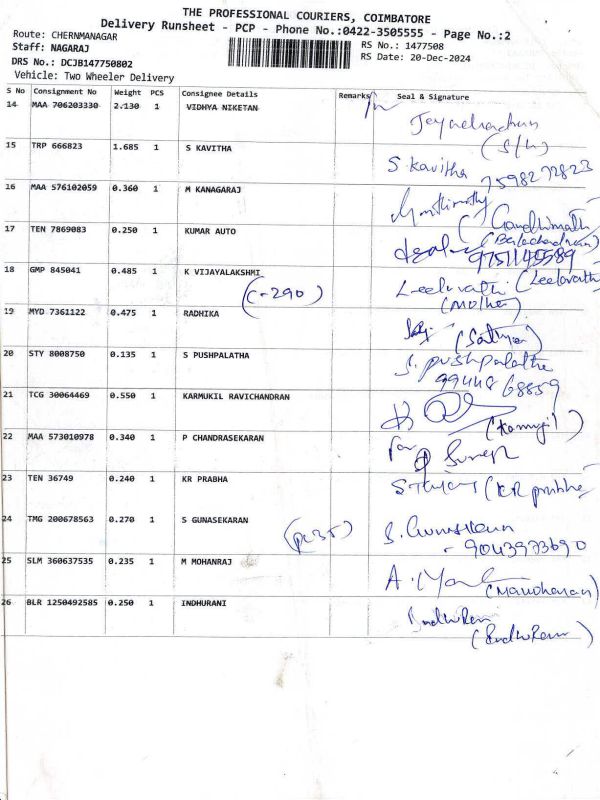 THE PROFESSIONAL COURIERS, COIMBATORE
Delivery Runsheet - PCP - Phone No.:0422-3505555 - Page No.:2
Route: CHERNMANAGAR
Staff: NAGARAJ
RS No.: 1477508
DRS No.: DCJB147750802
RS Date: 20-Dec-2024
Vehicle: Two Wheeler Delivery
S No Consignment No Weight PCS Consignee Details Remarks Seal & Signature
14 MAA 706203330 2.130 1 VIDHYA NIKETAN
(S/W)
15 TRP 666823 1.685 1 S KAVITHA S. Kavitha
7598272823
16 MAA 576102059 0.360 1 M KANAGARAJ
(Gandhimathi
17 TEN 7869083 0.250 1 KUMAR AUTO (Balachandran)
9751145589
18 GMP 845041 0.485 1 K VIJAYALAKSHMI Leelavathi (Leelavathi)
(C-290) (Mother)
19 MYD 7361122 0.475 1 RADHIKA
(Sathya)
20 STY 8008750 0.135 1 S PUSHPALATHA S. pushpalatha
99448 68859
21 TCG 30064469 0.550 1 KARMUKIL RAVICHANDRAN
22 MAA 573010978 0.340 1 P CHANDRASEKARAN for
23 TEN 36749 0.240 1 KR PRABHA (KR prabha
24 TMG 200678563 0.270 1 S GUNASEKARAN S. Gunasekaran
- 9043973690
25 SLM 360637535 0.235 1 M MOHANRAJ
(Manoharan)
26 BLR 1250492585 0.250 1 INDHURANI IndhuRani
(IndhuRani)